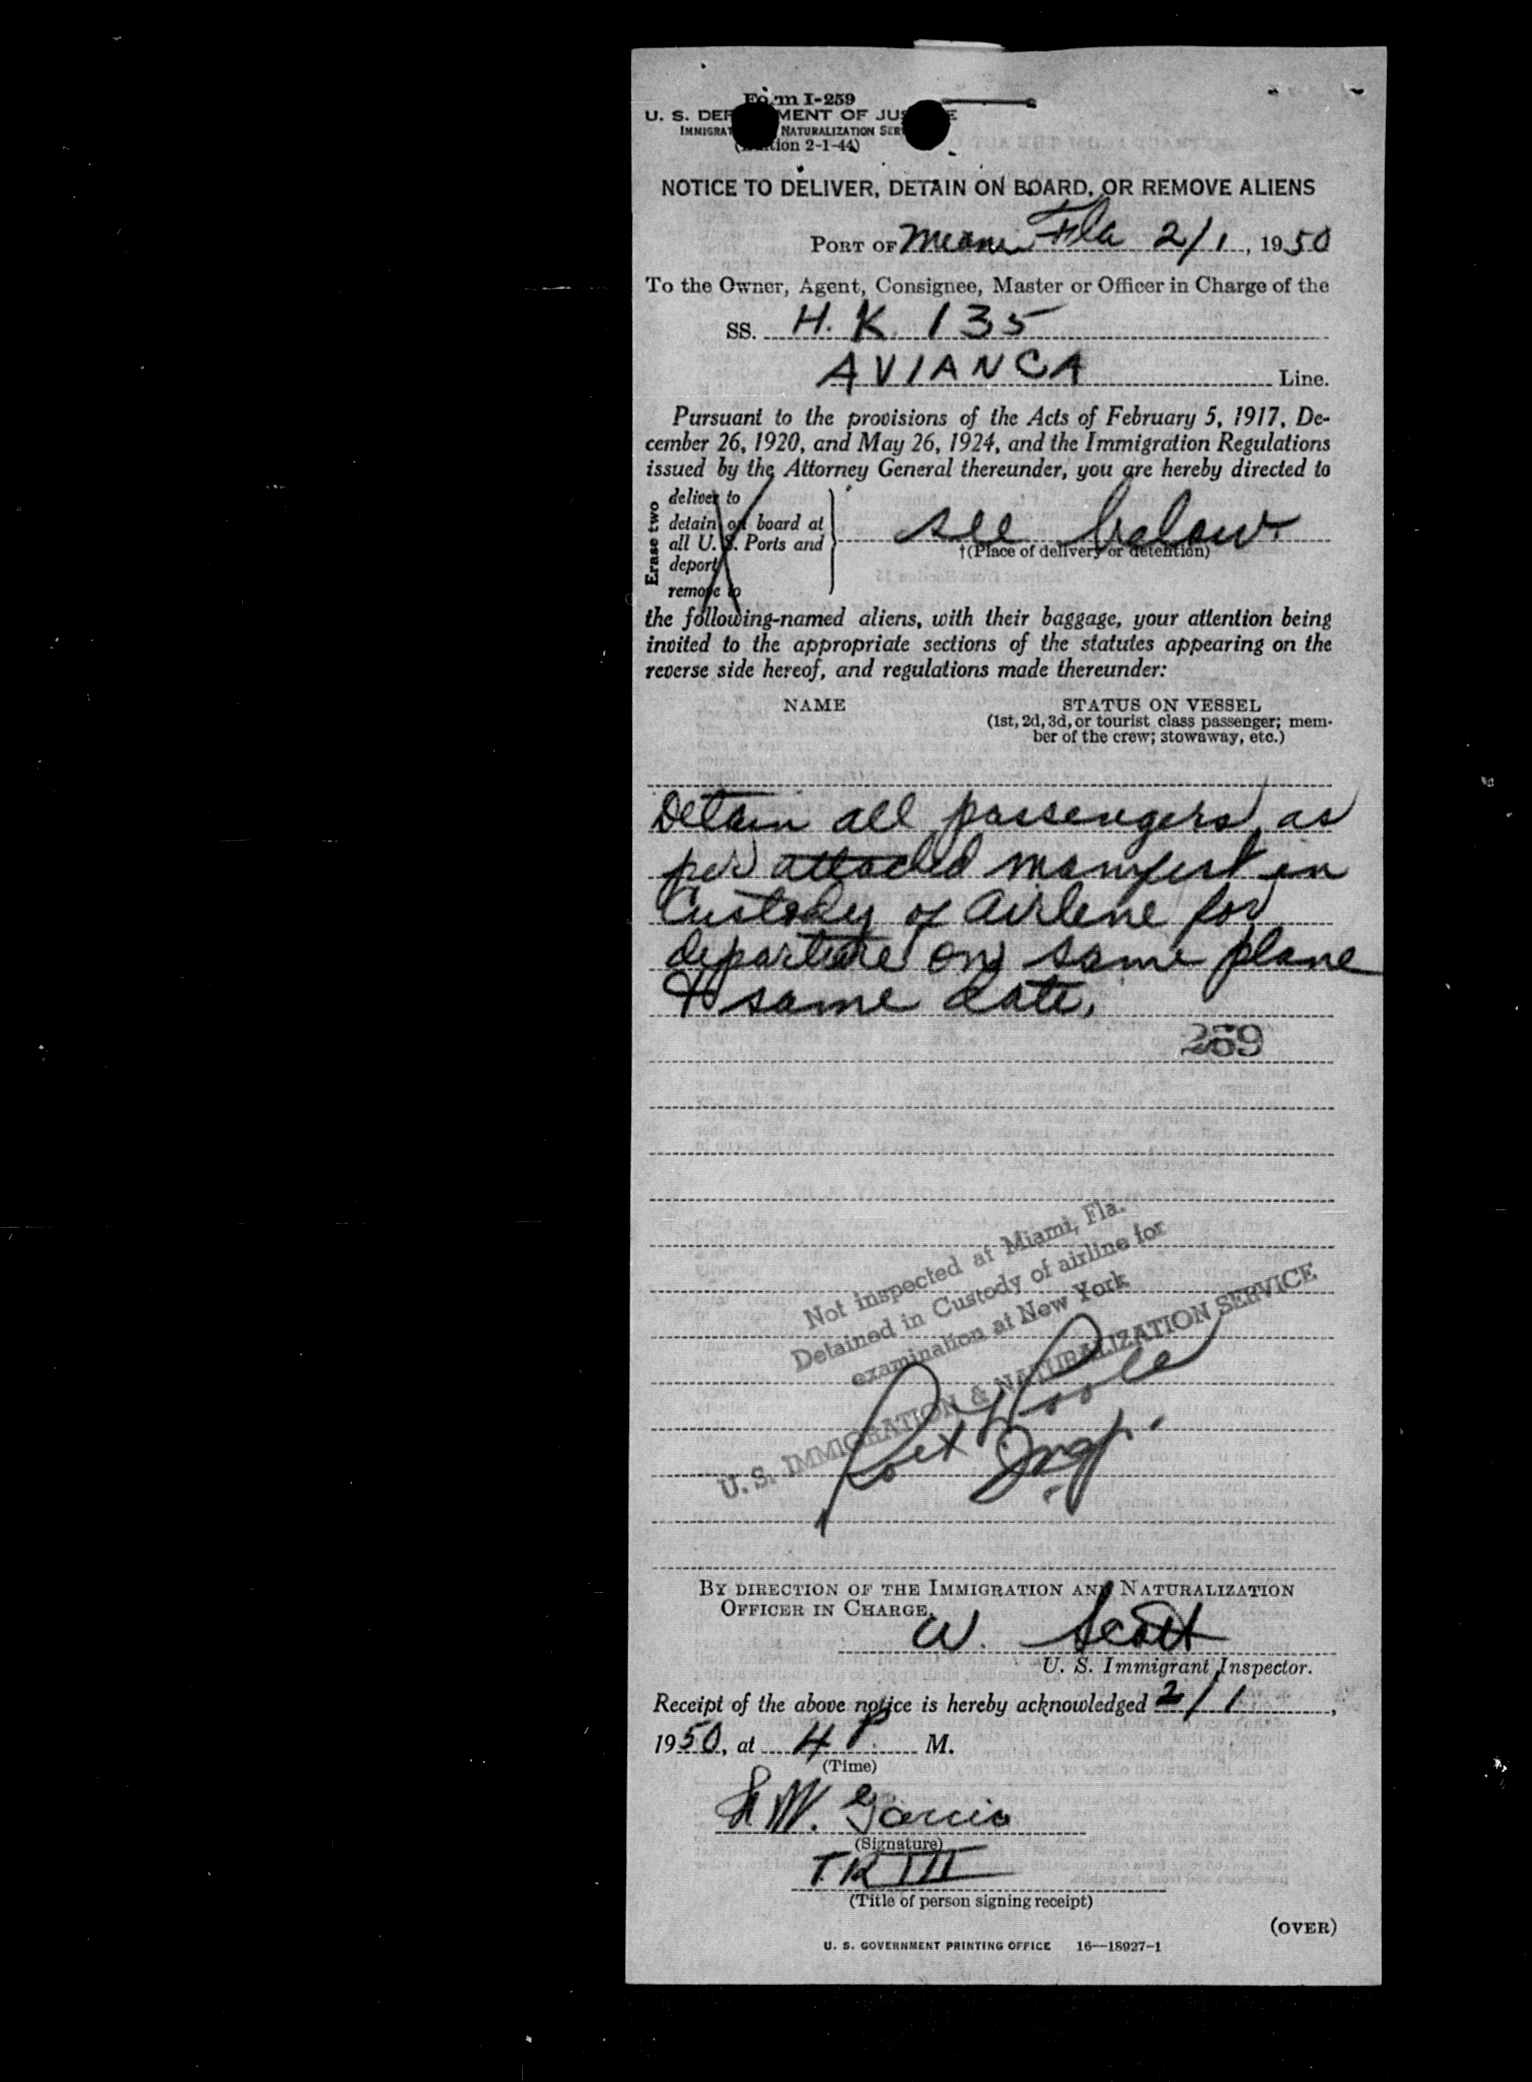 Form I-259
U. S. DEPARTMENT OF JUSTICE
IMMIGRATION NATURALIZATION SERVICE
(Edition 2-1-44)
NOTICE TO DELIVER, DETAIN ON BOARD, OR REMOVE ALIENS
PORT OF Miami Fla 2/1, 1950
To the Owner, Agent, Consignee, Master or Officer in Charge of the
SS. H.K. 135
AVIANCA Line.
Pursuant to the provisions of the Acts of February 5, 1917, De-
cember 26, 1920, and May 26, 1924, and the Immigration Regulations
issued by the Attorney General thereunder, you are hereby directed to
Erase two
deliver to
detain on board at
all U. S. Ports and
deport
remove to
see below.
†(Place of delivery or detention)
the following-named aliens, with their baggage, your attention being
invited to the appropriate sections of the statutes appearing on the
reverse side hereof, and regulations made thereunder:
NAME STATUS ON VESSEL
(1st, 2d, 3d, or tourist class passenger; mem-
ber of the crew; stowaway, etc.)
Detain all passengers, as
per attached manifest in
Custody of Airline for
departure on same plane
& same date.
259
Not inspected at Miami, Fla.
Detained in Custody of airline for
examination at New York
U. S. IMMIGRATION & NATURALIZATION SERVICE
Insp.
BY DIRECTION OF THE IMMIGRATION AND NATURALIZATION
OFFICER IN CHARGE,
W. Scott
U. S. Immigrant Inspector.
Receipt of the above notice is hereby acknowledged 2/1,
1950, at 4 P. M.
(Time)
W. Garcia
(Signature)
T.R III
(Title of person signing receipt)
(OVER)
U. S. GOVERNMENT PRINTING OFFICE 16—18927-1